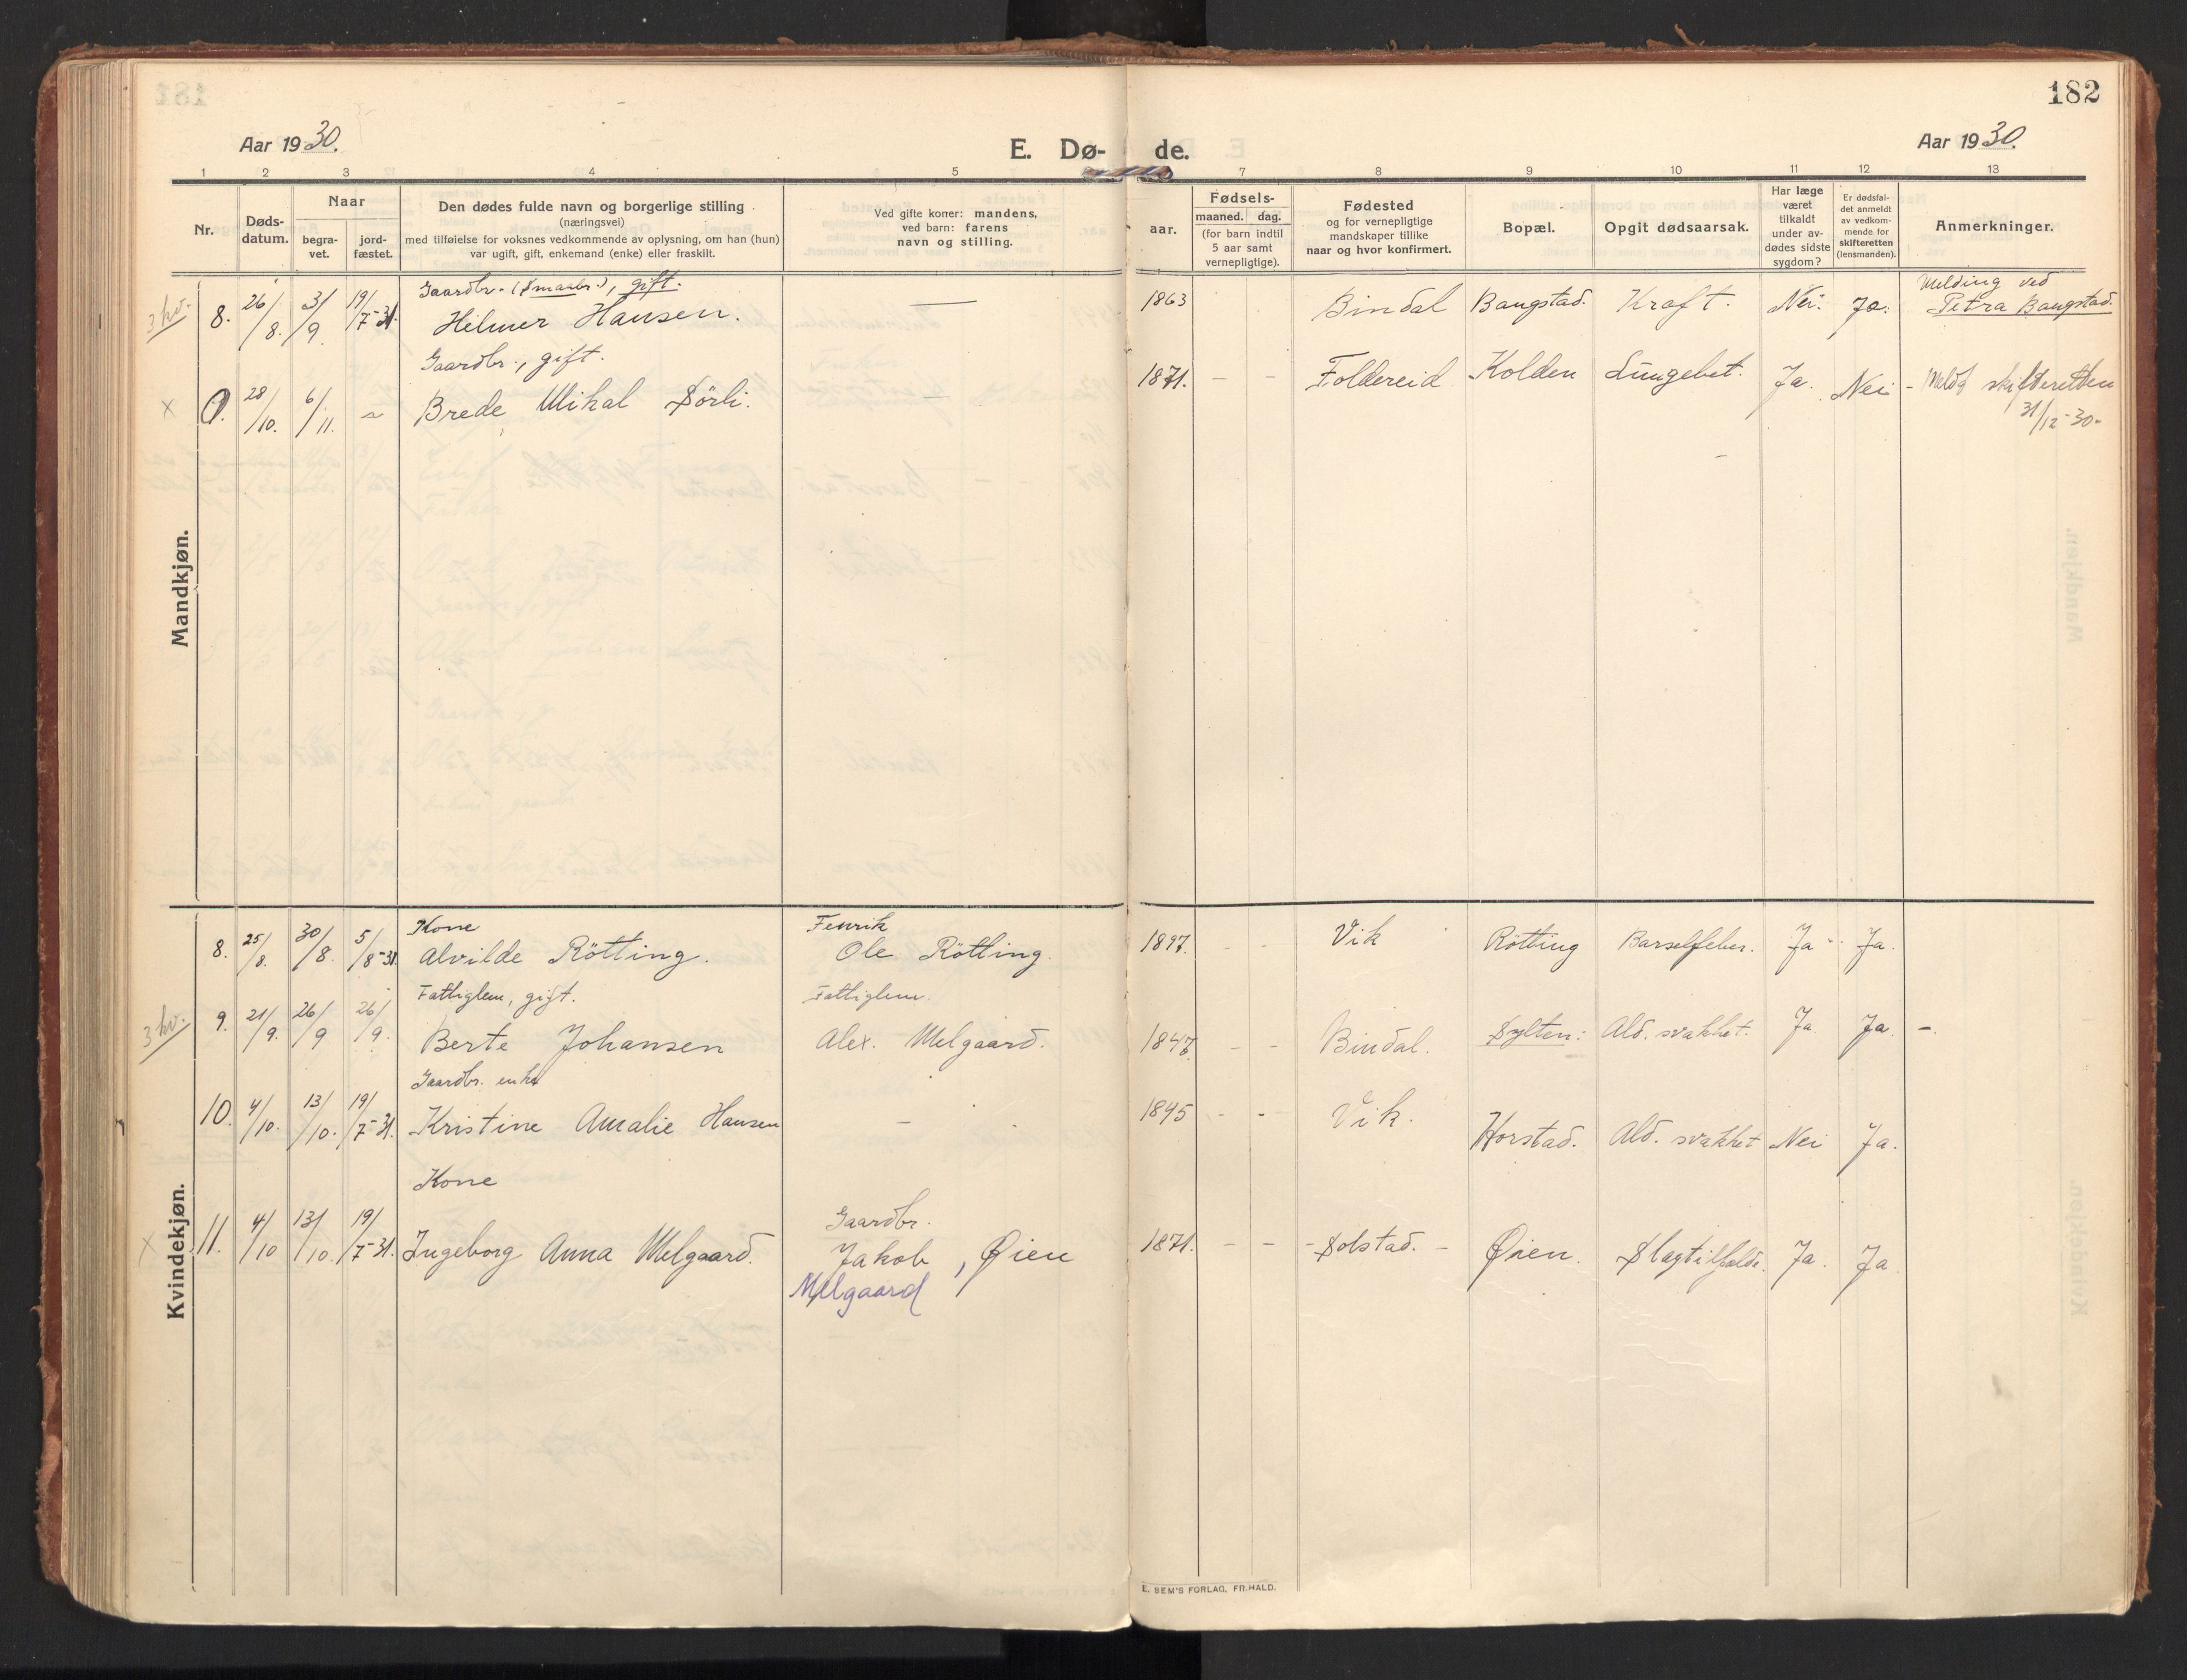 182
Aar 1930.
E. Dø- de.
Aar 1930.
1 2 3 4 5 7 8 9 10 11 12 13
Nr.
Døds-
datum.
Naar
begra-
vet.
jord-
fæstet.
Den dødes fulde navn og borgerlige stilling
(næringsvei)
med tilføielse for voksnes vedkommende av oplysning, om han (hun)
var ugift, gift, enkemand (enke) eller fraskilt.
Ved gifte koner: mandens,
ved barn: farens
navn og stilling.
aar.
Fødsels-
maaned. dag.
(for barn indtil
5 aar samt
vernepligtige).
Fødested
og for vernepligtige
mandskaper tillike
naar og hvor konfirmert.
Bopæl.
Opgit dødsaarsak.
Har læge
været
tilkaldt
under av-
dødes sidste
sygdom?
Er dødsfal-
det anmeldt
av vedkom-
mende for
skifteretten
(lensmanden).
Anmerkninger.
Mandkjøn.
Gaardbr. (Smaabr.), gift.
3 kv. 8. 26/8. 3/9. 19/7-31. Hilmer Hansen. — 1863 Bindal Bangstad. Kraft. Nei. Ja. Melding ved
Petra Bangstad.
Gaardbr., gift.
x 9. 28/10. 6/11. ~ Brede Mikal Sörli. - 1871. - - Foldereid Kolden Lungebet. Ja. Nei - Meldt skifteretten
31/12-30.
Kvindekjøn.
Kone Fenrik
8. 25/8. 30/8. 5/8-31 Alvilde Rötting. Ole Rötting. 1897. - - Vik Rötting Barselfeber. Ja Ja.
Fattiglem, gift. Fattiglem.
3 kv. 9. 21/9. 26/9 26/9. Berte Johansen Alex. Melgaard. 1847. - - Bindal. Sylten: Ald. svakhet. Ja Ja. -
Gaardbr. enke
10. 4/10. 13/10. 19/7-31. Kristine Amalie Hansen - 1845 - - Vik. Horstad. Ald. svakhet Nei Ja.
Kone Gaardbr.
x 11. 4/10 13/10. 19/7-31. Ingeborg Anna Melgaard. Jakob, Øien 1871. - - - Solstad. - Øien. Slagtilfælde. Ja. Ja
Melgaard
E. SEM'S FORLAG, FR.HALD.